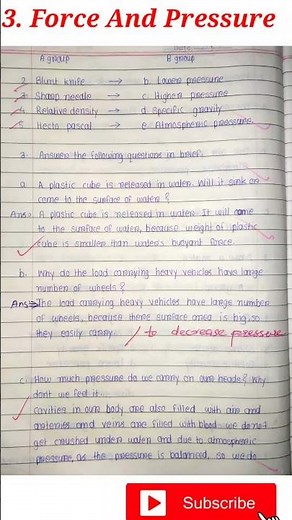 3. Force And Pressure
A group B group
2. Blunt knife → b. Lower pressure
3. Sharp needle → c. Higher pressure
4. Relative density → d. Specific gravity
5. Hecto pascal → e. Atmospheric pressure
3. Answer the following questions in brief.
a. A plastic cube is released in water. Will it sink or
come to the surface of water?
Ans:- A plastic cube is released in water. It will come
to the surface of water, because weight of plastic
cube is smaller than water's buoyant force.
b. Why do the load carrying heavy vehicles have large
number of wheels?
Ans⇒ The load carrying heavy vehicles have large number
of wheels, because there surface area is big so
they easily carry / to decrease pressure
c. How much pressure do we carry on our heads? Why
dont we feel it.
Cavities in our body are also filled with air and
arteries and veins are filled with blood. we do not
get crushed under water and due to atmospheric
pressure, as the pressure is balanced, so we do
Subscribe